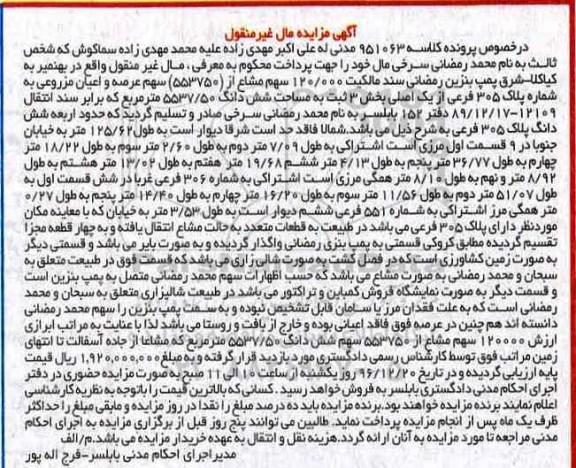 آگهی مزایده مال غیرمنقول
درخصوص پرونده کلاسه ۹۵۱۰۶۳ مدنی له علی اکبر مهدی زاده علیه محمد مهدی زاده سماکوش که شخص
ثالث به نام محمد رمضانی سرخی مال خود را جهت پرداخت محکوم به معرفی، مال غیر منقول واقع در بهنمیر به
کیاکلا-شرق پمپ بنزین رمضانی سند مالکیت ۱۲۰/۰۰۰ سهم مشاع از (۵۵۳۷۵۰) سهم عرصه و اعیان مزروعی به
شماره پلاک ۳۰۵ فرعی از یک اصلی بخش ثبت به مساحت شش دانگ ۵۵۳۷/۵۰ مترمربع که برابر سند انتقال
۱۲۱۰۹-۸۹/۱۲/۱۷ دفتر ۱۵۲ بابلسر به نام محمد رمضانی سرخی صادر و تسلیم گردید که حدود اربعه شش
دانگ پلاک ۳۰۵ فرعی به شرح ذیل می باشد.شمالا فاقد حد است شرقا دیوار است به طول ۱۲۵/۶۲ متر به خیابان
جنوبا در ۹ قسمت اول مرزی است اشتراکی به طول ۷/۰۹ متر دوم به طول ۲/۶۰ متر سوم به طول ۱۸/۲۲ متر
چهارم به طول ۳۶/۷۷ متر پنجم به طول ۴/۱۳ متر ششم ۱۹/۶۸ متر هفتم به طول ۱۳/۰۲ متر هشتم به طول
۸/۹۲ متر و نهم به طول ۸/۱۰ متر همگی مرزی است اشتراکی به شماره ۳۰۶ فرعی غربا در شش قسمت اول به
طول ۵۱/۰۷ متر دوم به طول ۱۱/۵۶ متر سوم به طول ۱۶/۲۰ متر چهارم به طول ۱۴/۴۰ متر پنجم به طول ۰/۲۷
متر همگی مرز اشتراکی به شماره ۵۵۱ فرعی ششم دیوار است به طول ۳/۵۳ متر به خیابان که با معاینه مکان
موردنظر دارای پلاک ۳۰۵ فرعی می باشد در طبیعت به قطعات متعدد به حالت مشاع انتقال یافته و به چهار قطعه مجزا
تقسیم گردیده مطابق کروکی قسمتی به پمپ بنزی رمضانی واگذار گردیده و به صورت بایر می باشد و قسمتی دیگر
به صورت زمین کشاورزی است که در فصل کشت به صورت شالی زاری می باشد که قسمت فوق در طبیعت متعلق به
سبحان و محمد رمضانی به صورت مشاع می باشد که حسب اظهارات سهم محمد رمضانی متصل به پمپ بنزین است
و قسمت دیگر به صورت نمایشگاه فروش کمباین و تراکتور می باشد در طبیعت شالیزاری متعلق به سبحان و محمد
رمضانی است که به علت فقدان مرز یا سامان قابل تشخیص نبوده و به سمت پمپ بنزین را سهم محمد رمضانی
دانسته اند هم چنین در عرصه فوق فاقد اعیانی بوده و خارج از بافت و روستا می باشد لذا با عنایت به مراتب ابرازی
ارزش ۱۲۰۰۰۰ سهم مشاع از ۵۵۳۷۵۰ سهم شش دانگ ۵۵۳۷/۵۰ مترمربع که مشاعا از جاده آسفالت تا انتهای
زمین مراتب فوق توسط کارشناس رسمی دادگستری مورد بازدید قرار گرفته و به مبلغ ۱,۹۲۰,۰۰۰,۰۰۰ ریال قیمت
پایه ارزیابی گردیده و در تاریخ ۹۶/۱۲/۲۰ روز یکشنبه از ساعت ۱۰ الی ۱۱ صبح به صورت مزایده حضوری در دفتر
اجرای احکام مدنی دادگستری بابلسر به فروش خواهد رسید. کسانی که بالاترین قیمت را باتوجه به نظریه کارشناسی
اعلام نمایند برنده مزایده خواهند بود.برنده مزایده باید ده درصد مبلغ را نقدا در روز مزایده و مابقی مبلغ را حداکثر
ظرف یک ماه پس از انجام مزایده پرداخت نماید. طالبین می توانند پنج روز قبل از برگزاری مزایده به اجرای احکام
مدنی مراجعه تا مورد مزایده به آنان ارائه گردد.هزینه نقل و انتقال به عهده خریدار مزایده می باشد.م/الف
مدیراجرای احکام مدنی بابلسر-فرج اله پور